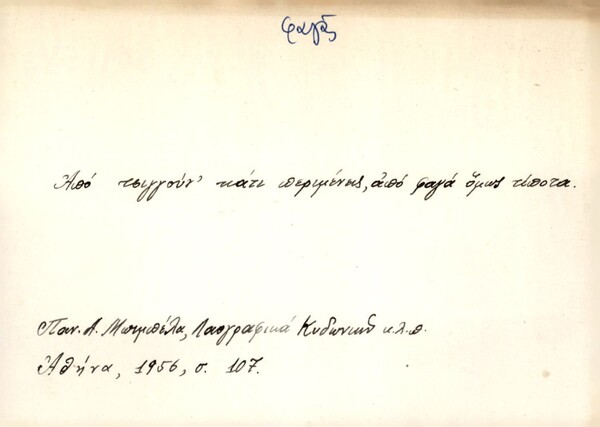 φαγᾶς
Ἀπό τσιγγούν' κάτι περιμένεις, ἀπό φαγά ὅμως τίποτα.
Παν. Λ. Μπιμπέλα, Λαογραφικά Κυδωνιῶν κ.λ.π.
Ἀθήνα, 1956, σ. 107.